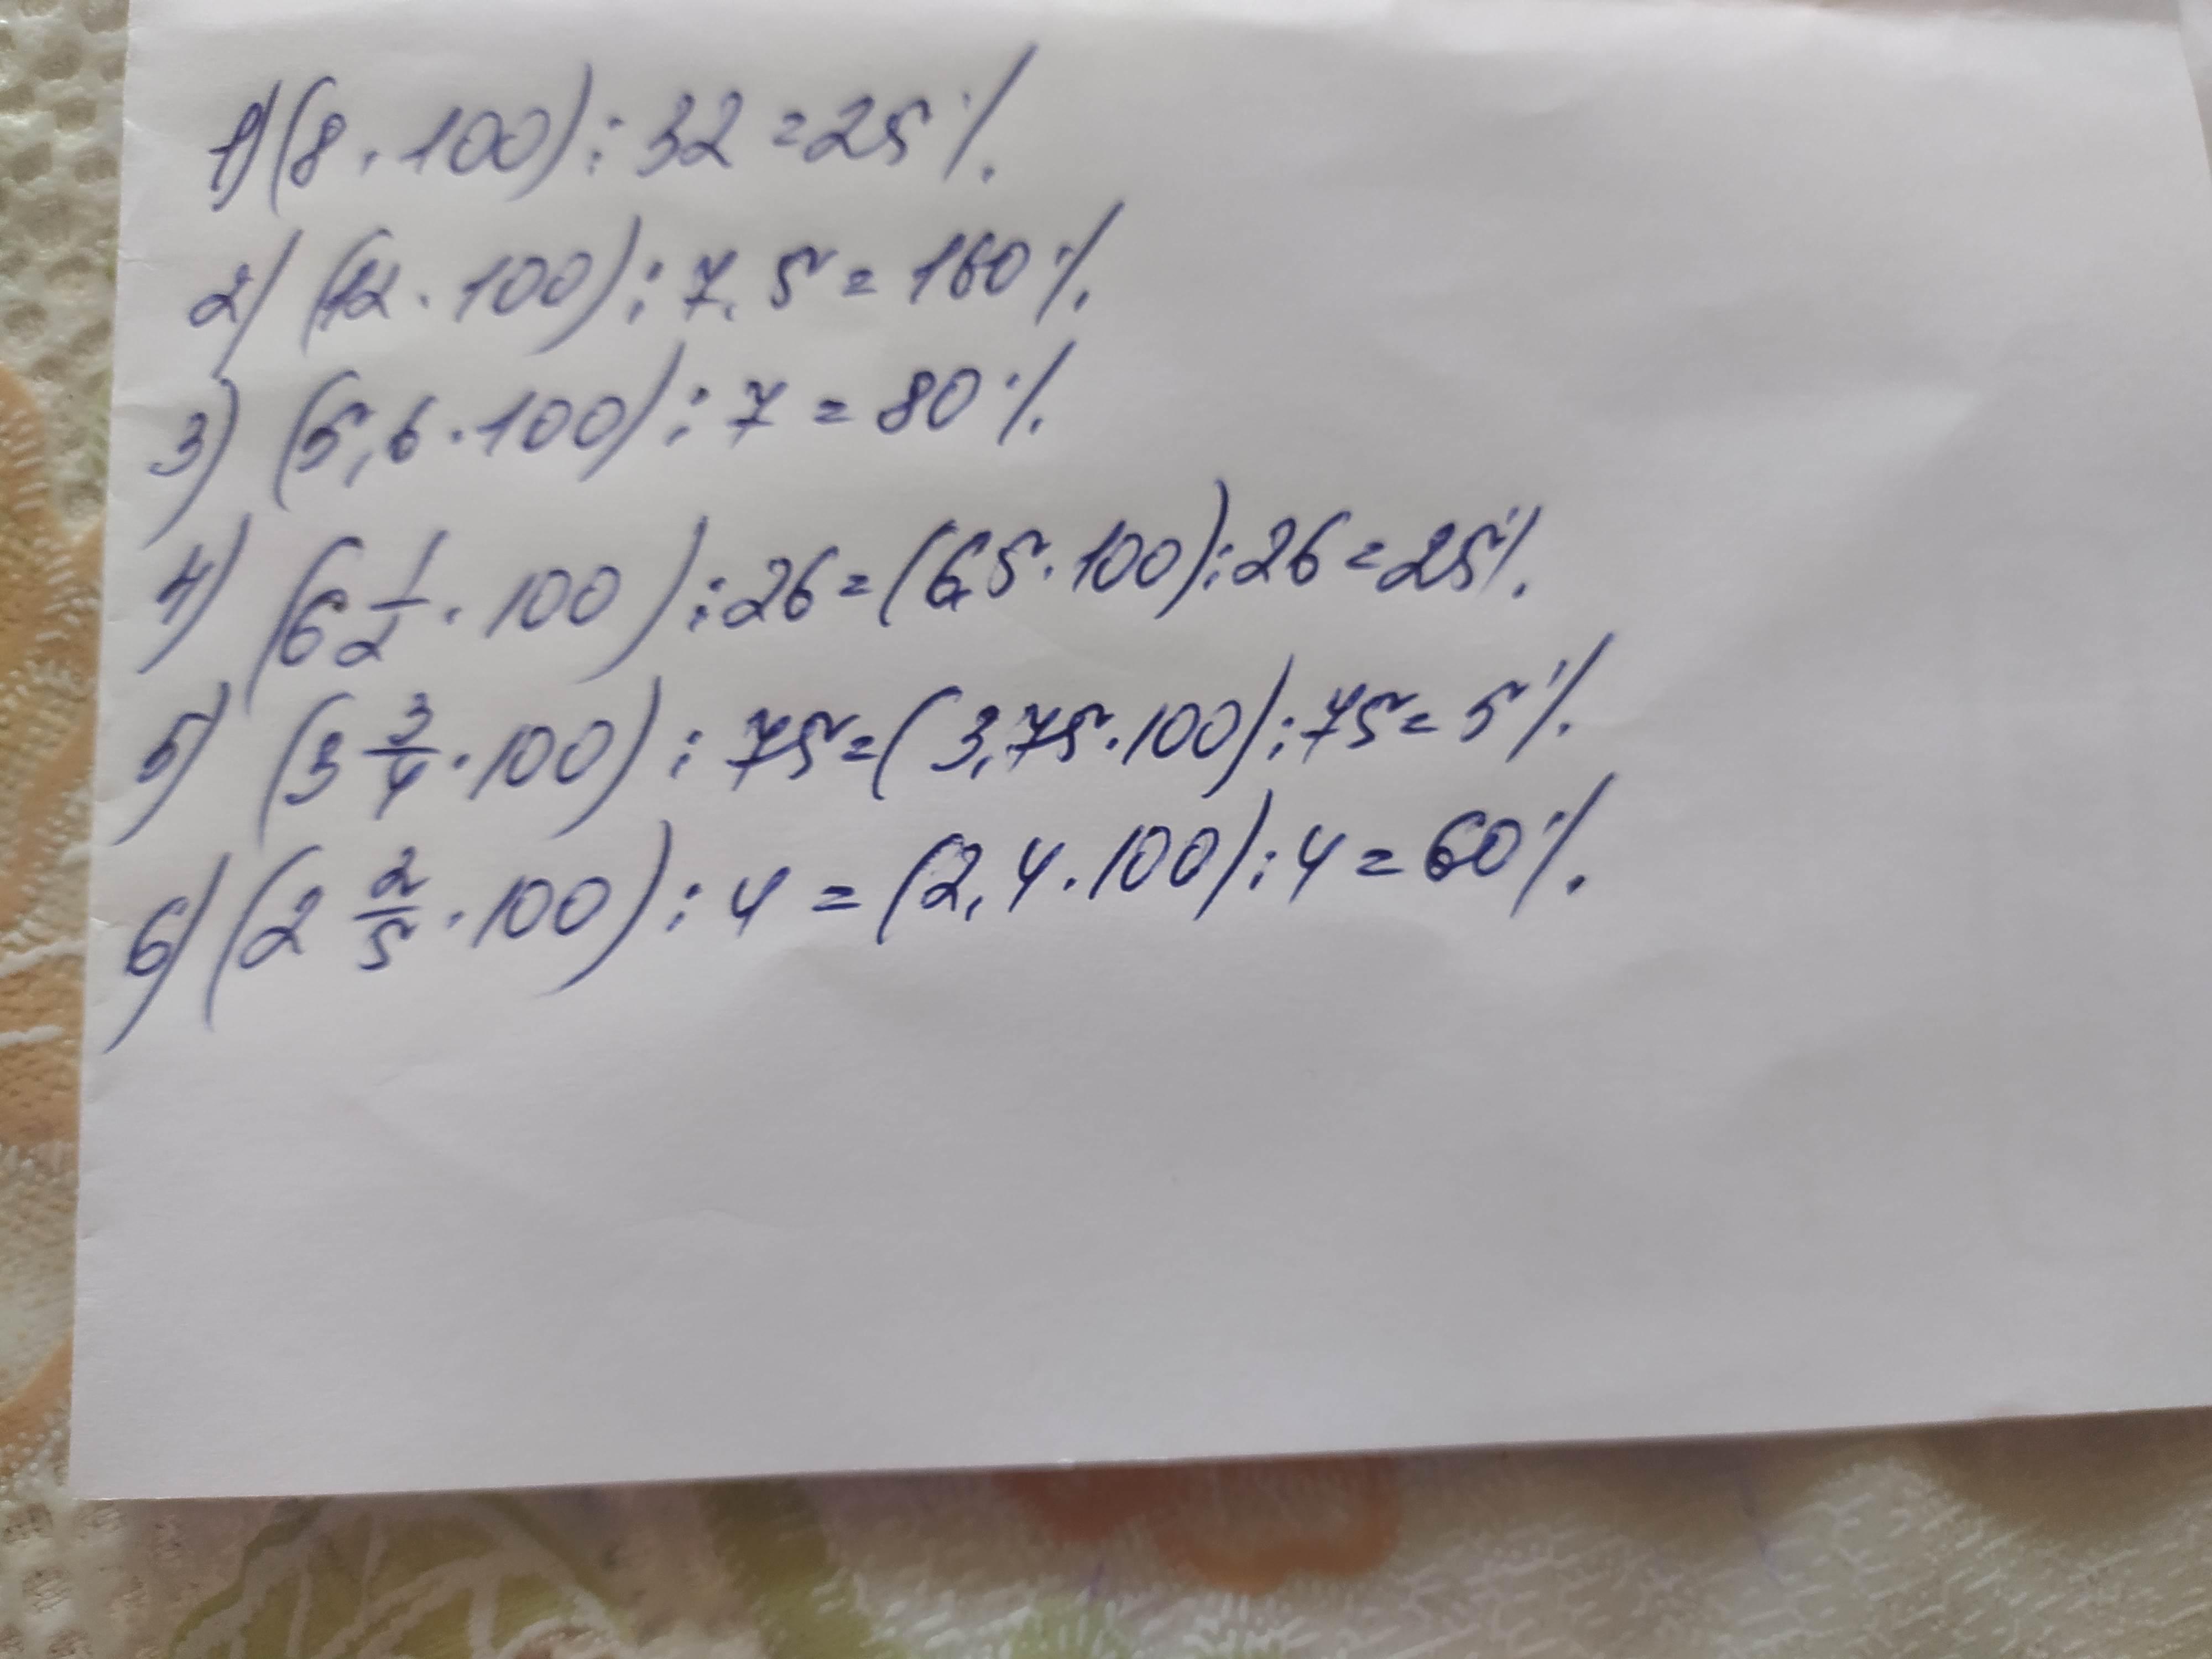 1) (8 · 100) : 32 = 25%
2) (12 · 100) : 7,5 = 160%
3) (5,6 · 100) : 7 = 80%
4) (6 1/2 · 100) : 26 = (6,5 · 100) : 26 = 25%
5) (3 3/4 · 100) : 75 = (3,75 · 100) : 75 = 5%
6) (2 2/5 · 100) : 4 = (2,4 · 100) : 4 = 60%